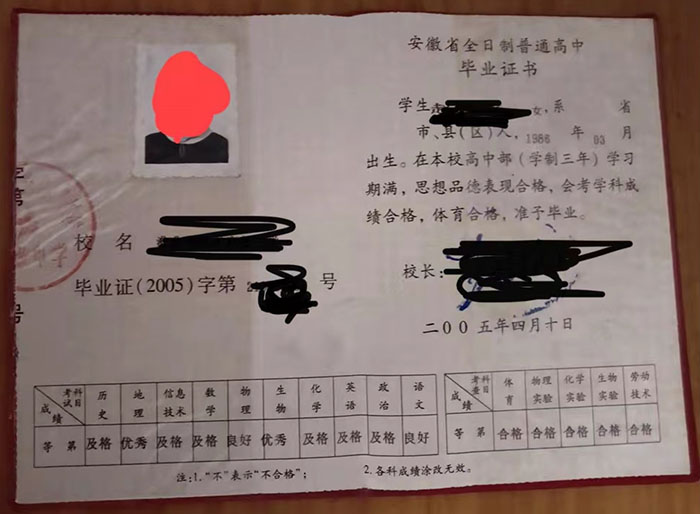 安徽省全日制普通高中
毕业证书
学生 女,系 省
市、县(区)人,1986 年 03 月
出生。在本校高中部(学制三年)学习
期满,思想品德表现合格,会考学科成
绩合格,体育合格,准予毕业。
校长:
二〇〇五年四月十日
字第
号
校 名
毕业证(2005)字第 2 号
成绩 考试科目 历史 地理 信息技术 数学 物理 生物 化学 英语 政治 语文
等 第 及格 优秀 及格 及格 良好 优秀 及格 及格 及格 良好
成绩 考查科目 体育 物理实验 化学实验 生物实验 劳动技术
等 第 合格 合格 合格 合格 合格
注:1.“不”表示“不合格”; 2.各科成绩涂改无效。